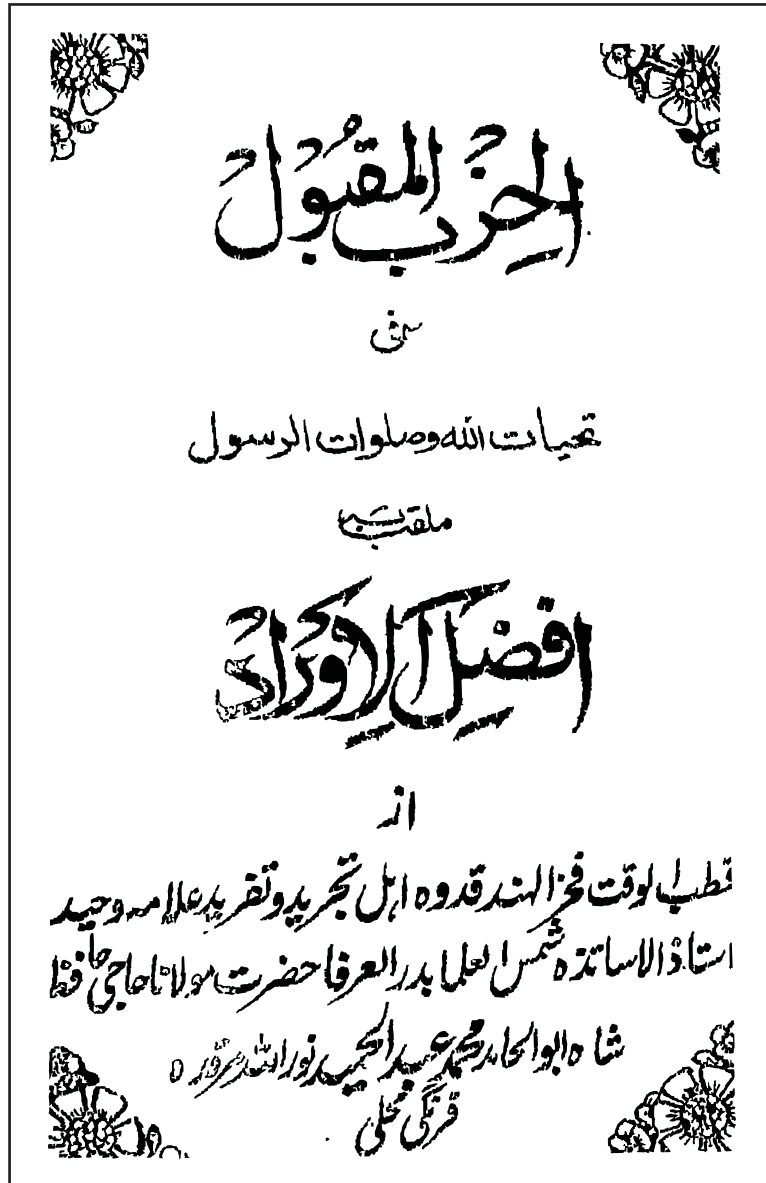 الحِزب المَقبُول
مسمّٰی
تحیات الله وصلوات الرسول
ملقب بہ
افضلِ الاِوْرَاد
از
قطب الوقت فخر الہند قدوہ اہل تجرید و تفرید علامہ وحید
استاذ الاساتذہ شمس العلما بدر العرفا حضرت مولانا حاجی حافظ
شاہ ابو الحامد محمد عبد الحمید نور اللہ مرقدہ
فرنگی محلی